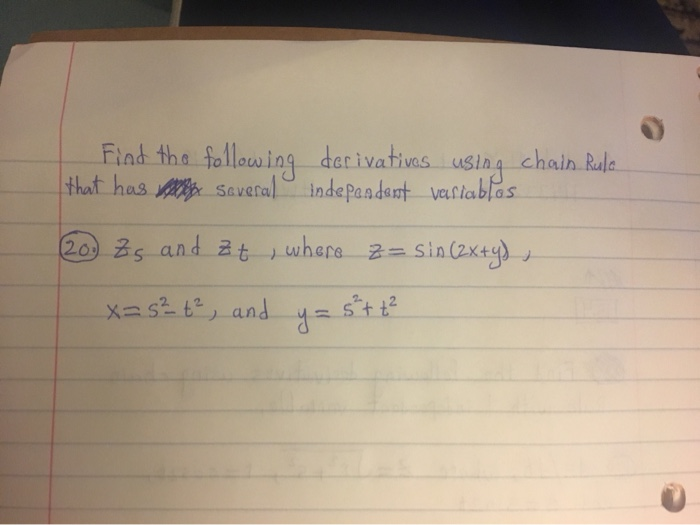 Find the following derivatives using chain Rule
that has several independent variables
20. Zs and Zt, where z = sin(2x+y),
x = s² - t², and y = s² + t²